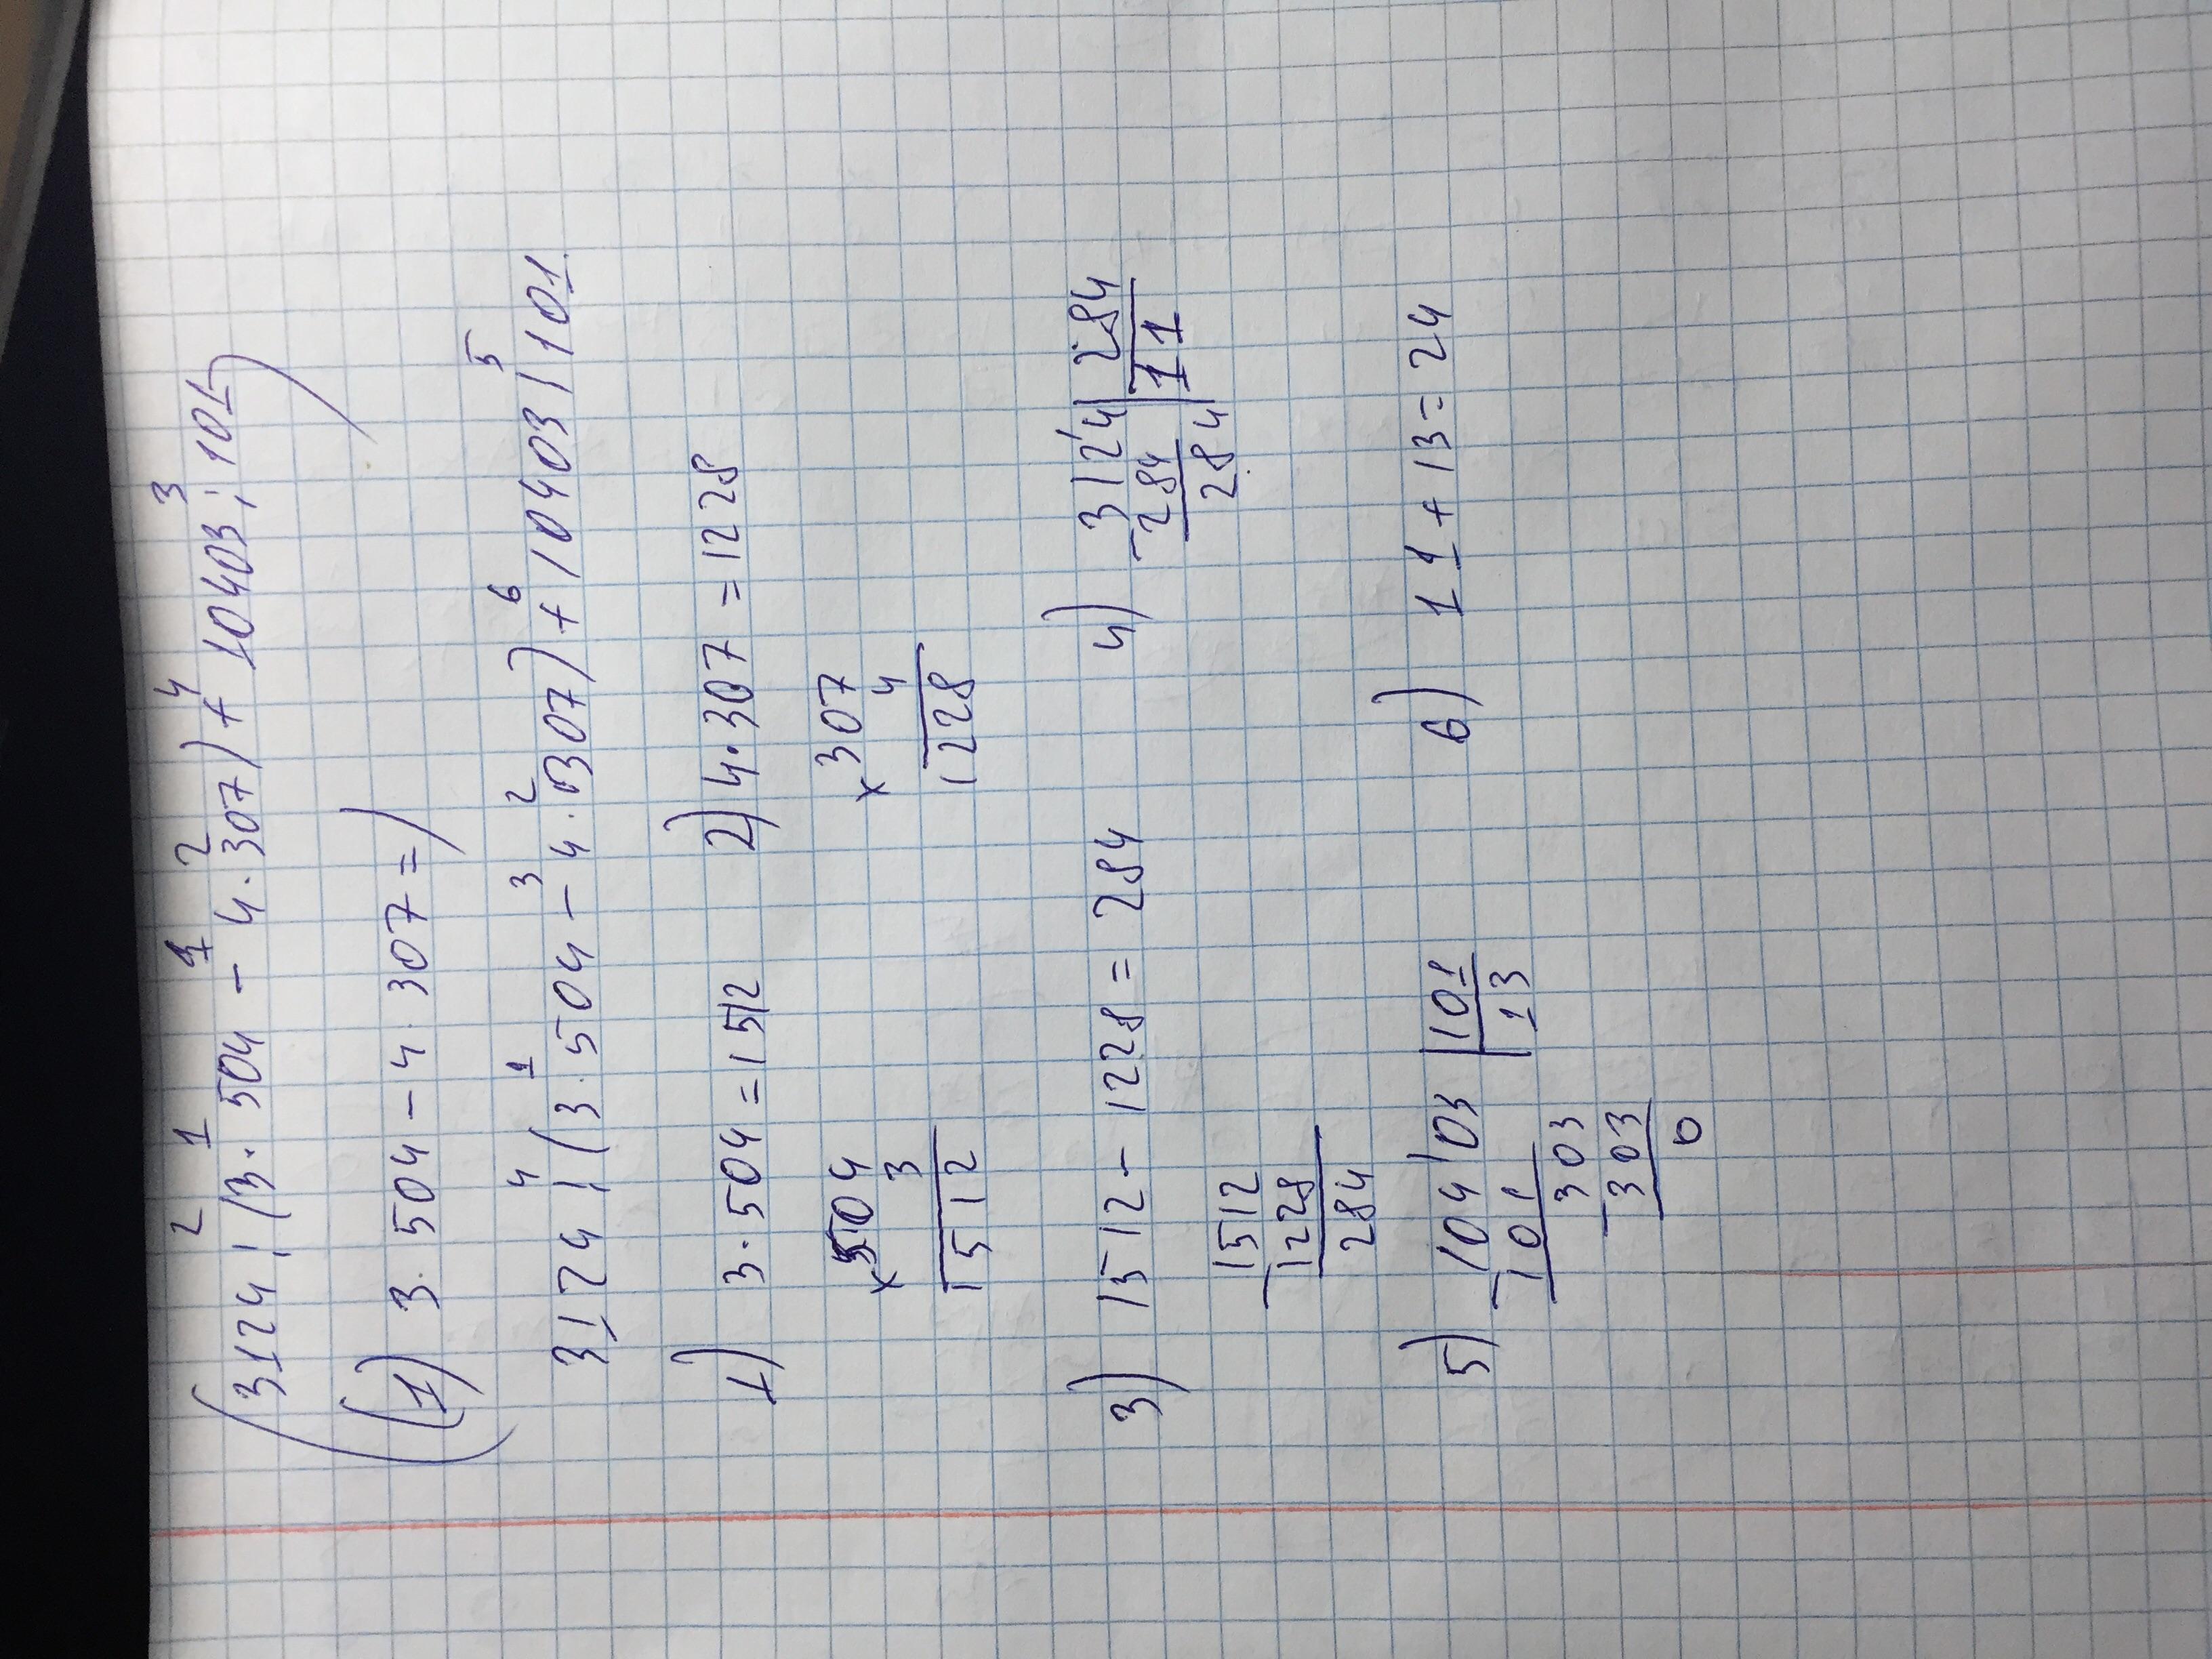 (3124 : (3 · 504 - 4 · 307) + 10403 : 101)
2 1 4 2 4 3
((1) 3 · 504 - 4 · 307 = )
4 1 3 2 6 5
3124 : (3 · 504 - 4 · 307) + 10403 : 101
1) 3 · 504 = 1512 2) 4 · 307 = 1228
× 504 × 307
3 4
1512 1228
3) 1512 - 1228 = 284 4) 3124 | 284
- 284 | 11
284
- 1512
1228
284
5) - 10403 | 101 6) 11 + 13 = 24
101 | 13
303
- 303
0